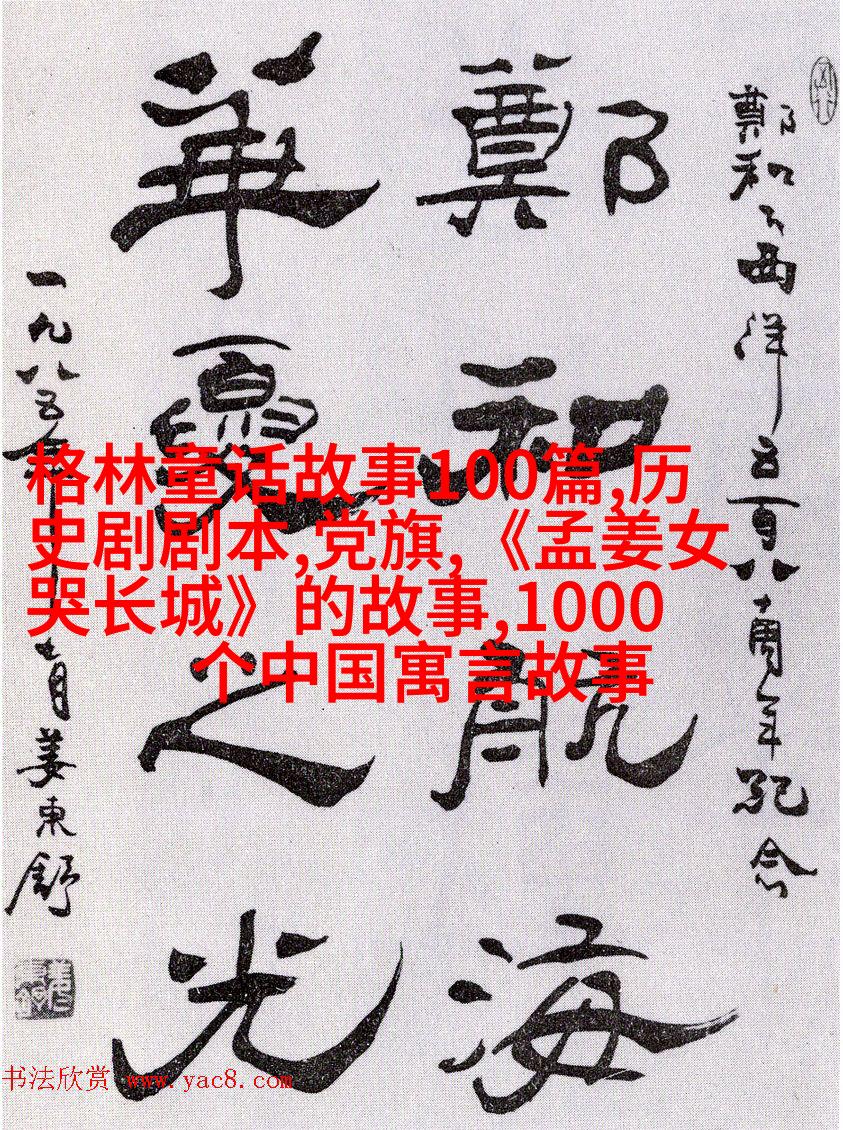 鄭和下西洋五百八十周年纪念
鄭和航海
華夏之光
一九八五年十月姜東舒
格林童话故事100篇,历
史剧剧本,党旗,《孟姜女
哭长城》的故事,1000
个中国寓言故事
书法欣赏 www.yac8.com